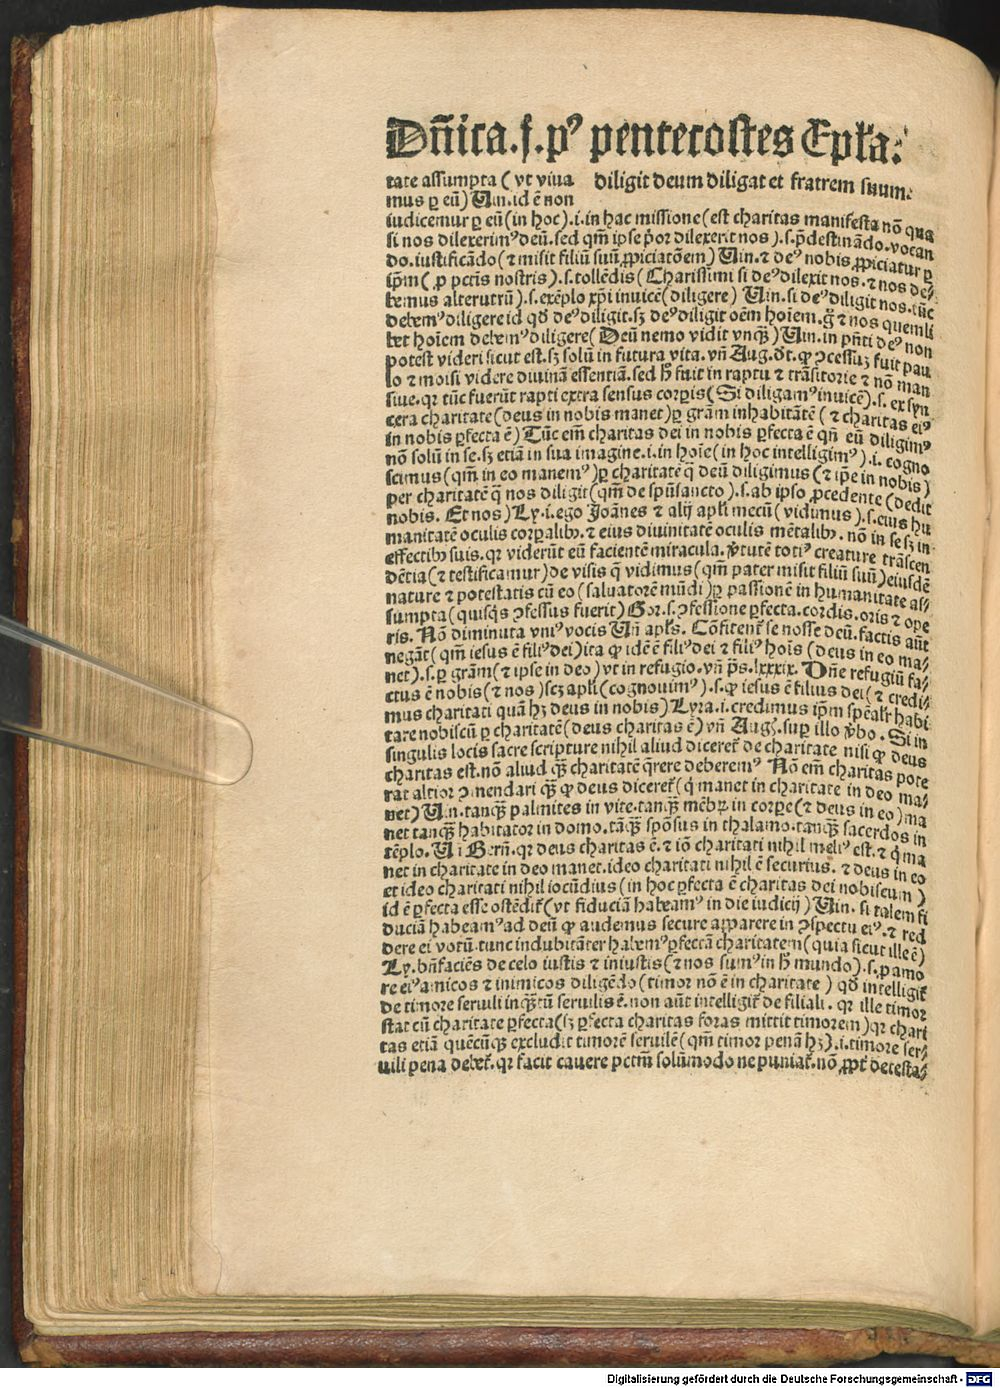 Dñica.ſ.pꝰ penteco​stes Epl'a.
tate aſſumpta ( vt viua diligit deum diligat et fratrem ſuum.
mus ꝑ eũ) Uin.id ẽ non
iudicemur ꝑ eũ (in hoc).i.in hac miſſione (eſt charitas manifeſta nõ qua
ſi nos dilexerimꝰ deũ. ſed qm̃ ipſe p̃or dilexerit nos).ſ.p̃deſtinãdo.vocan
do.iuſtificãdo (⁊ miſit filiũ ſuũ ꝓpiciatõem) Uin.⁊ deꝰ nobis ꝓpiciatur ꝑ
ip̃m ( ꝓ pctĩs noſtris).ſ.tollẽdis ( Chariſſimi ſi deꝰ dilexit nos.⁊ nos de⸗
bemus alterutrũ).ſ.exẽplo xp̃i inuicẽ (diligere) Uin.ſi deꝰ diligit nos.tũc
debemꝰ diligere id qď deꝰ diligit.ſꝫ deꝰ diligit oẽm hoiem.g̃ ⁊ nos quemli
bet hoiem debemꝰ diligere ( Deũ nemo vidit vnqꝫ̃ ) Uin.in pñti deꝰ non
poteſt videri ſicut eſt.ſꝫ ſolũ in futura vita.vñ Aug.ďt.ꝙ ↄceſſuꝫ fuit pau
lo ⁊ moiſi videre diuinã eſſentiã.ſed h̃ fuit in raptu ⁊ trãſitorie ⁊ nõ man
ſiue.qr tũc fuerũt rapti extra ſenſus corpis ( Si diligamꝰ inuicẽ).ſ. ex ſyn
cera charitate (deus in nobis manet) ꝑ gr̃am inhabitãtẽ ( ⁊ charitas eiꝰ
in nobis ꝑfecta ẽ ) Tũc em̃ charitas dei in nobis ꝑfecta ẽ qñ eũ diligimꝰ
nõ ſolũ in ſe.ſꝫ etiã in ſua imagine.i.in hoĩe (in hoc intelligimꝰ ).i. cogno
ſcimus (qm̃ in eo manemꝰ ) ꝑ charitatẽ q̃ deũ diligimus (⁊ ip̃e in nobis )
per charitatẽ q̃ nos diligit (qm̃ de ſpũſancto).ſ.ab ipſo ꝓcedente (dedit
nobis. Et nos) Ly.i.ego Joãnes ⁊ alij apl'i mecũ (vidimus).ſ.eius hu
manitatẽ oculis corꝑalibꝫ.⁊ eius diuinitatẽ oculis mẽtalibꝫ. nõ in ſe ſꝫ in
effectibꝫ ſuis. qr viderũt eũ facientẽ miracula. v̓tutẽ totiꝰ creature trãſcen
dẽtia (⁊ teſtificamur) de viſis q̃ vidimus (qm̃ pater miſit filiũ ſuũ) eiuſdẽ
nature ⁊ poteſtatis cũ eo ( ſaluatorẽ mũdi ) ꝑ paſſionẽ in humanitate aſ⸗
ſumpta (quiſq̃s ↄfeſſus fuerit) Gor.ſ.ↄfeſſione ꝑfecta.cordis.oris ⁊ ope
ris. Nõ diminuta vniꝰ vocis Uñ apl's. Cõfitent̃ ſe noſſe deũ.factis aũt
negãt (qm̃ ieſus ẽ filiꝰ dei) ita ꝙ idẽ ẽ filiꝰ dei ⁊ filiꝰ hoĩs (deus in eo ma⸗
net).ſ.ꝑ gr̃am (⁊ ipſe in deo) vt in refugio.vñ p̃s.lxxxix. Dñe refugiũ fa⸗
ctus ẽ nobis (⁊ nos) ſcꝫ apl'i (cognouimꝰ).ſ.ꝙ ieſus ẽ filius dei (⁊ credi⸗
mus charitati quã hꝫ deus in nobis) Lyra.i.credimus ip̃m ſpẽalr̃ habi
tare nobiſcũ ꝑ charitatẽ (deus charitas ẽ) vñ Aug.ſuꝑ illo v̓bo . Si in
ſingulis locis ſacre ſcripture nihil aliud diceret̃ de charitate niſi ꝙ deus
charitas eſt.nõ aliud qꝫ̃ charitatẽ q̃rere deberemꝰ Nõ em̃ charitas pote
rat altior ↄmendari qꝫ̃ ꝙ deus diceret̃ (q̓ manet in charitate in deo ma⸗
net) Uin.tanqꝫ̃ palmites in vite.tanqꝫ̃ mẽbꝝ in corꝑe (⁊ deus in eo) ma
net tanqꝫ̃ habitator in domo.tãqꝫ̃ ſpõſus in thalamo.tanqꝫ̃ ſacerdos in
tẽplo. Uñ Berñ.qr deus charitas ẽ.⁊ iõ charitati nihil meliꝰ eſt.⁊ q̓ ma
net in charitate in deo manet.ideo charitati nihil ẽ ſecurius. ⁊ deus in eo
et ideo charitati nihil iocũdius (in hoc ꝑfecta ẽ charitas dei nobiſcum )
id ẽ ꝑfecta eſſe oſtẽdit̃ (vt fiduciã habeamꝰ in die iudicij ) Uin. ſi talem fi
duciã habeamꝰ ad deũ ꝙ audemus ſecure apparere in ↄſpectu eiꝰ.⁊ red
dere ei votũ.tunc indubitãter habemꝰ ꝑfectã charitatem (quia ſicut ille ẽ)
Ly.bñfaciẽs de celo iuſtis ⁊ iniuſtis (⁊ nos ſumꝰ in h̃ mundo).ſ.ꝑ amo
re eiꝰ amicos ⁊ inimicos diligẽdo (timor nõ ẽ in charitate ) qď intelligit̃
de timore ſeruili inqꝫ̃tũ ſeruilis ẽ.non aũt intelligit̃ de filiali. qr ille timor
ſtat cũ charitate ꝑfecta (ſꝫ ꝑfecta charitas foras mittit timorem) qr chari
tas etiã quẽcũqꝫ excludit timorẽ ſeruilẽ (qm̃ timor penã hꝫ).i.timore ſer⸗
uili pena debet̃.qr facit cauere pctm̃ ſolũmodo ne puniat̃.nõ ꝓpt̃ deteſta⸗
Digitalisierung gefördert durch die Deutsche Forschungsgemeinschaft - DFG